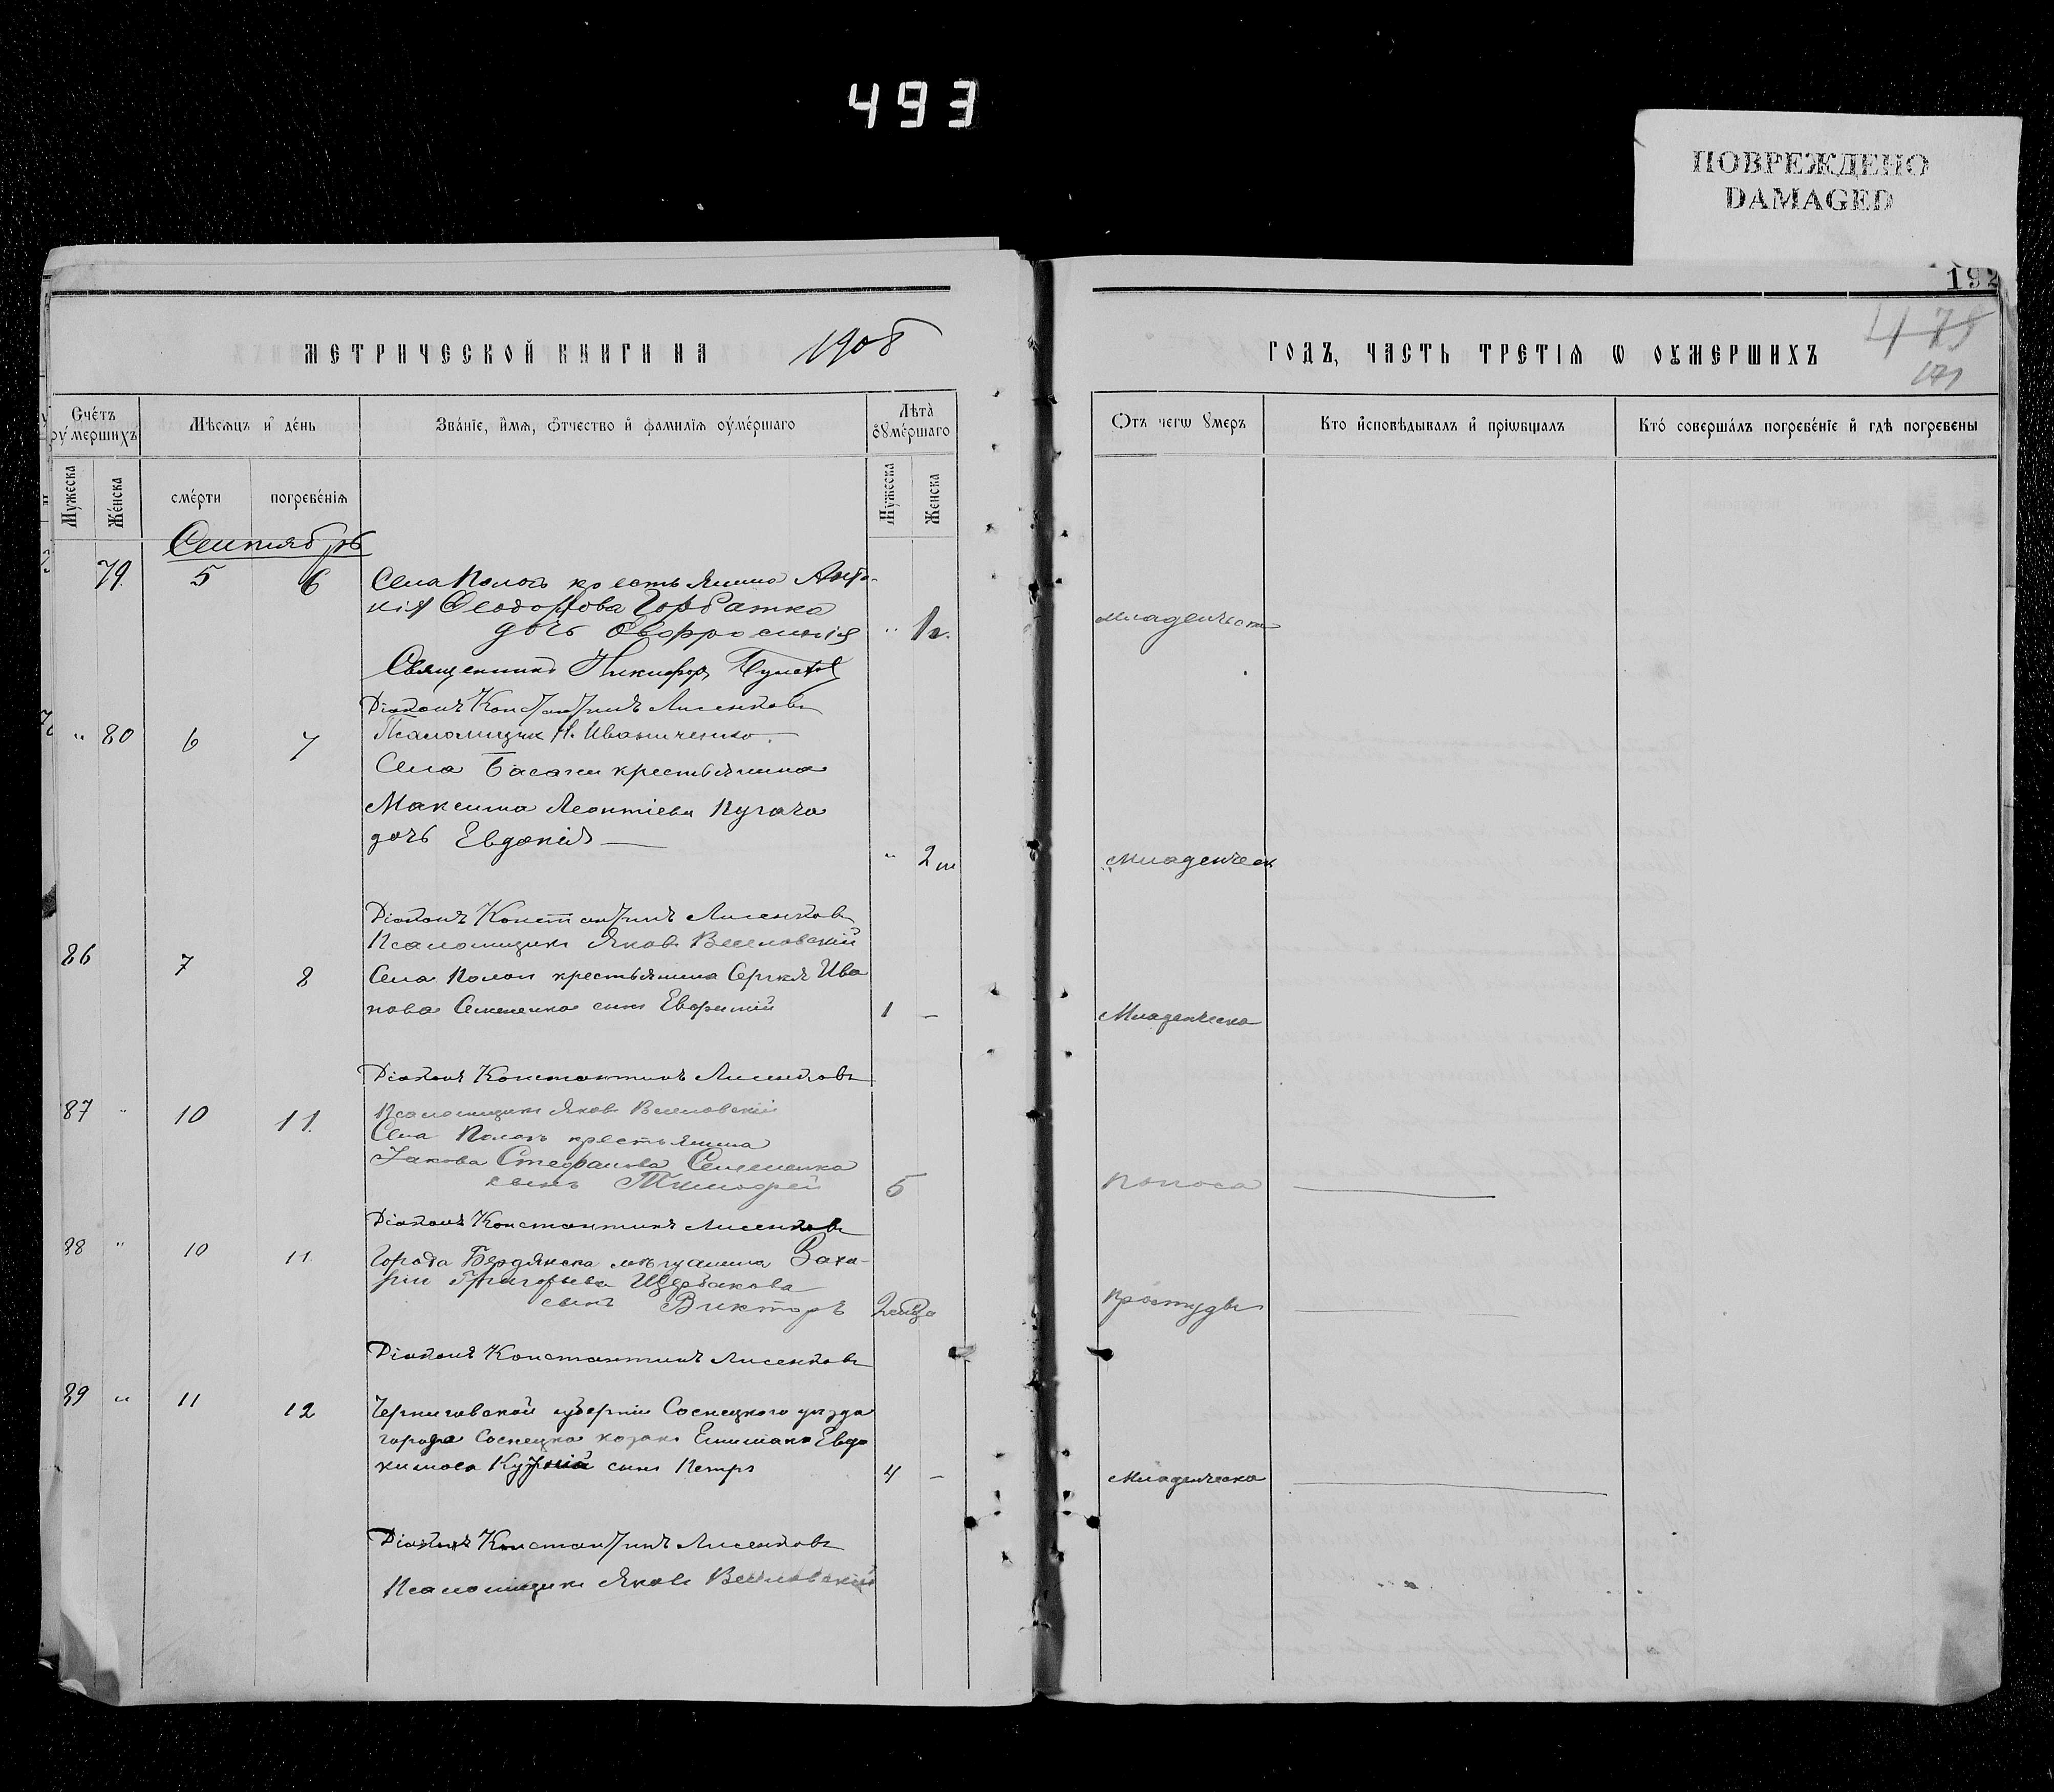 493
ПОВРЕЖДЕНО
DAMAGED
192
МЕТРИЧЕСКОЙ КНИГИ НА 1908
ГОДЪ, ЧАСТЬ ТРЕТІѦ Ѡ ОУМЕРШИХЪ
478
171
Счетъ оумершихъ
Мѣсѧцъ и день
Званіе, имѧ, отчество и фамиліѧ оумершаго
Лѣта оумершаго
Отъ чегѡ умеръ
Кто исповѣдывалъ и пріѡбщалъ
Кто совершалъ погребеніе и гдѣ погребены
Мужеска
Женска
смерти
погребеніѧ
Мужеска
Женска
Сентябрь
79. 5 6 Села Пологъ крестьянина Анто-
нія Ѳеодорова Горбатко
дочь Евфросинія " 1 г. младенческ
Священникъ Никифоръ
Діаконъ Константинъ Лисенковъ
" 80 6 7 Псаломщик Н. Иваниченко.
Села Басани крестьянина
Максима Леонтіева Пугача
дочь Евдокія " 2 м младенческ
Діаконъ Константинъ Лисенковъ
Псаломщикъ Яковъ Веселовскій
86 7 8 Села Пологи крестьянина Сергея Ива
нова Семененка сынъ Евфимій 1 - Младенческа
Діаконъ Константинъ Лисенковъ
87 " 10 11. Псаломщикъ Яковъ Веселовскій
Села Пологъ крестьянина
Іакова Стефанова Семененка
сынъ Тимофей 5 поноса
Діаконъ Константинъ Лисенковъ
88 " 10 11 Города Бердянска мѣщанина Заха-
рии Григорьева Щербакова
сынъ Викторъ простуды
Діаконъ Константинъ Лисенковъ
89 " 11 12 Черниговской губерніи Сосницкого уѣзда
города Сосницка козака Евдо
кимова сынъ Петръ 4 - Младенческа
Діаконъ Константинъ Лисенковъ
Псаломщикъ Яковъ Веселовскій